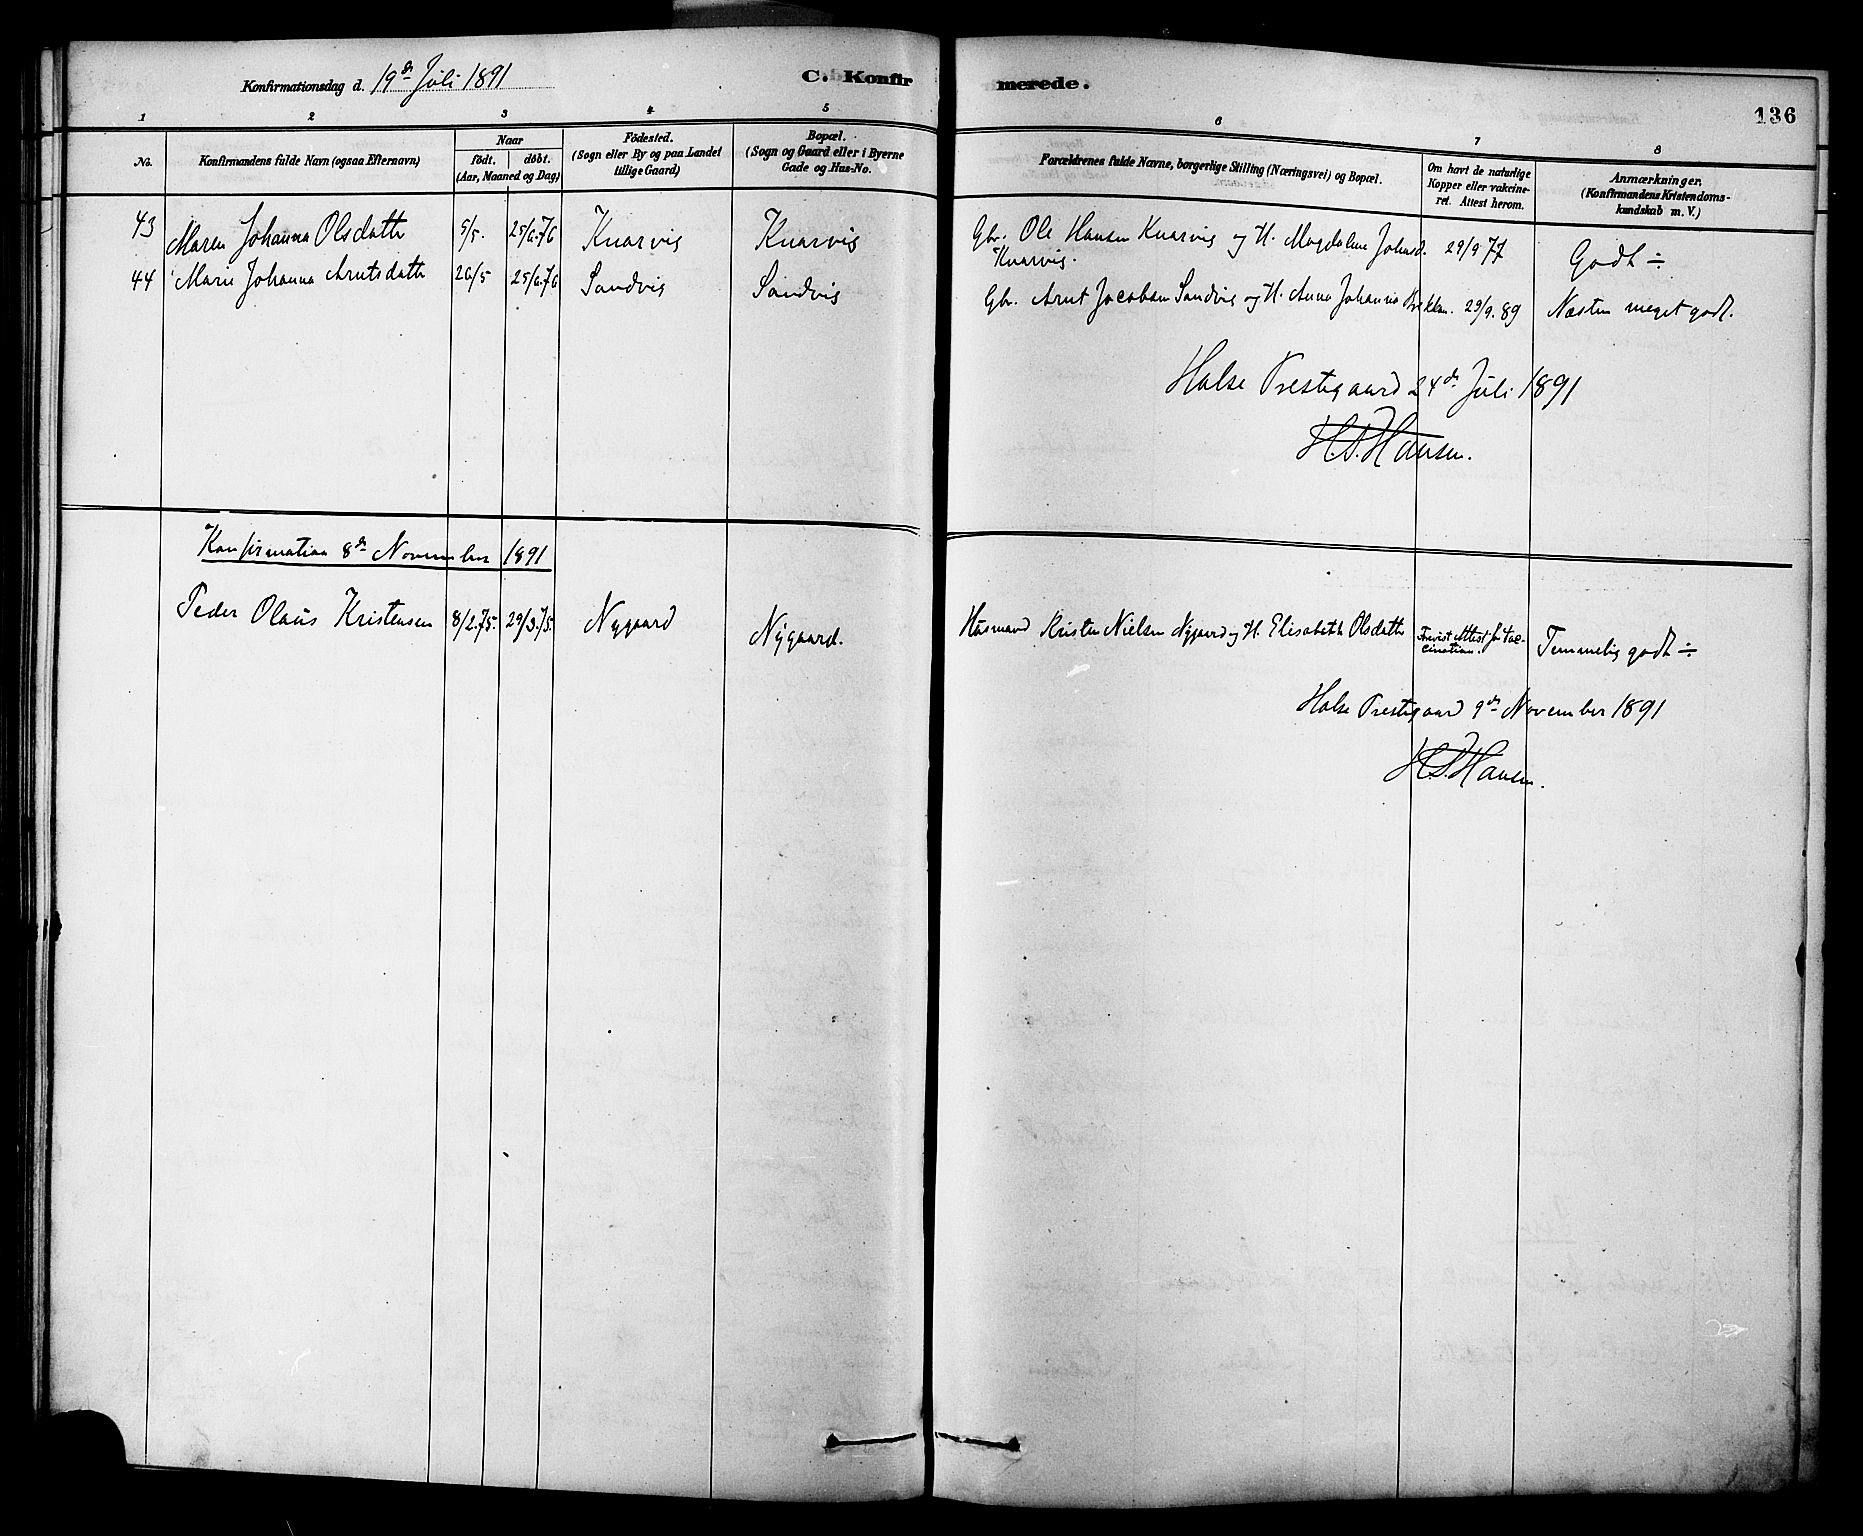 Konfirmationsdag d. 19de Juli 1891
C. Konfirmerede.
136
1 2 3 4 5 6 7 8
No.
Konfirmandens fulde Navn (ogsaa Efternavn)
Naar
födt. döbt.
(Aar, Maaned og Dag)
Födested.
(Sogn eller By og paa Landet
tillige Gaard)
Bopæl.
(Sogn og Gaard eller i Byerne
Gade og Hus-No.
Forældrenes fulde Navne, borgerlige Stilling (Næringsvei) og Bopæl.
Om havt de naturlige
Kopper eller vakcine-
ret. Attest herom.
Anmærkninger.
(Konfirmandens Kristendoms-
kundskab m. V.)
43 Maren Johanna Olsdatter 5/5. 25/6.76 Knarvig Knarvig Gbr. Ole Hansen Knarvig og H. Magdalena Johnsd. 29/9 77 Godt ÷
Knarvig.
44 Marie Johanna Arntsdatter 26/5 25/6.76 Sandvig Sandvig Gbr. Arnt Jacobsen Sandvig og H. Anna Johanna 29/9. 89 Næsten meget godt.
Halse Prestegaard 24de Juli 1891
H.S.Hansen.
Konfirmation 8de November 1891
Peder Olaus Kristensen 8/2.75. 29/3.75. Nygaard Nygaard. Husmand Kristen Nielsen Nygaard og H. Elisabeth Olsdatter Forevist Attest for Vac-
cination. Temmelig godt ÷
Halse Prestegaard 9de November 1891
H.S.Hansen.